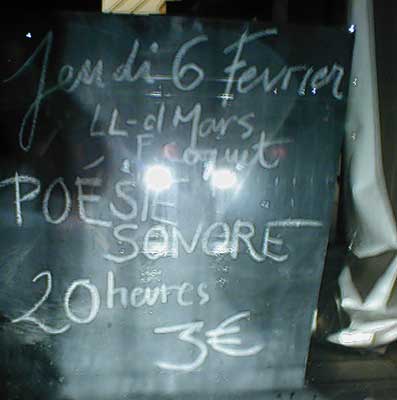 Jeudi 6 Février
LL-d Mars
F. Coquet
POÉSIE
SONORE
20 heures
3€